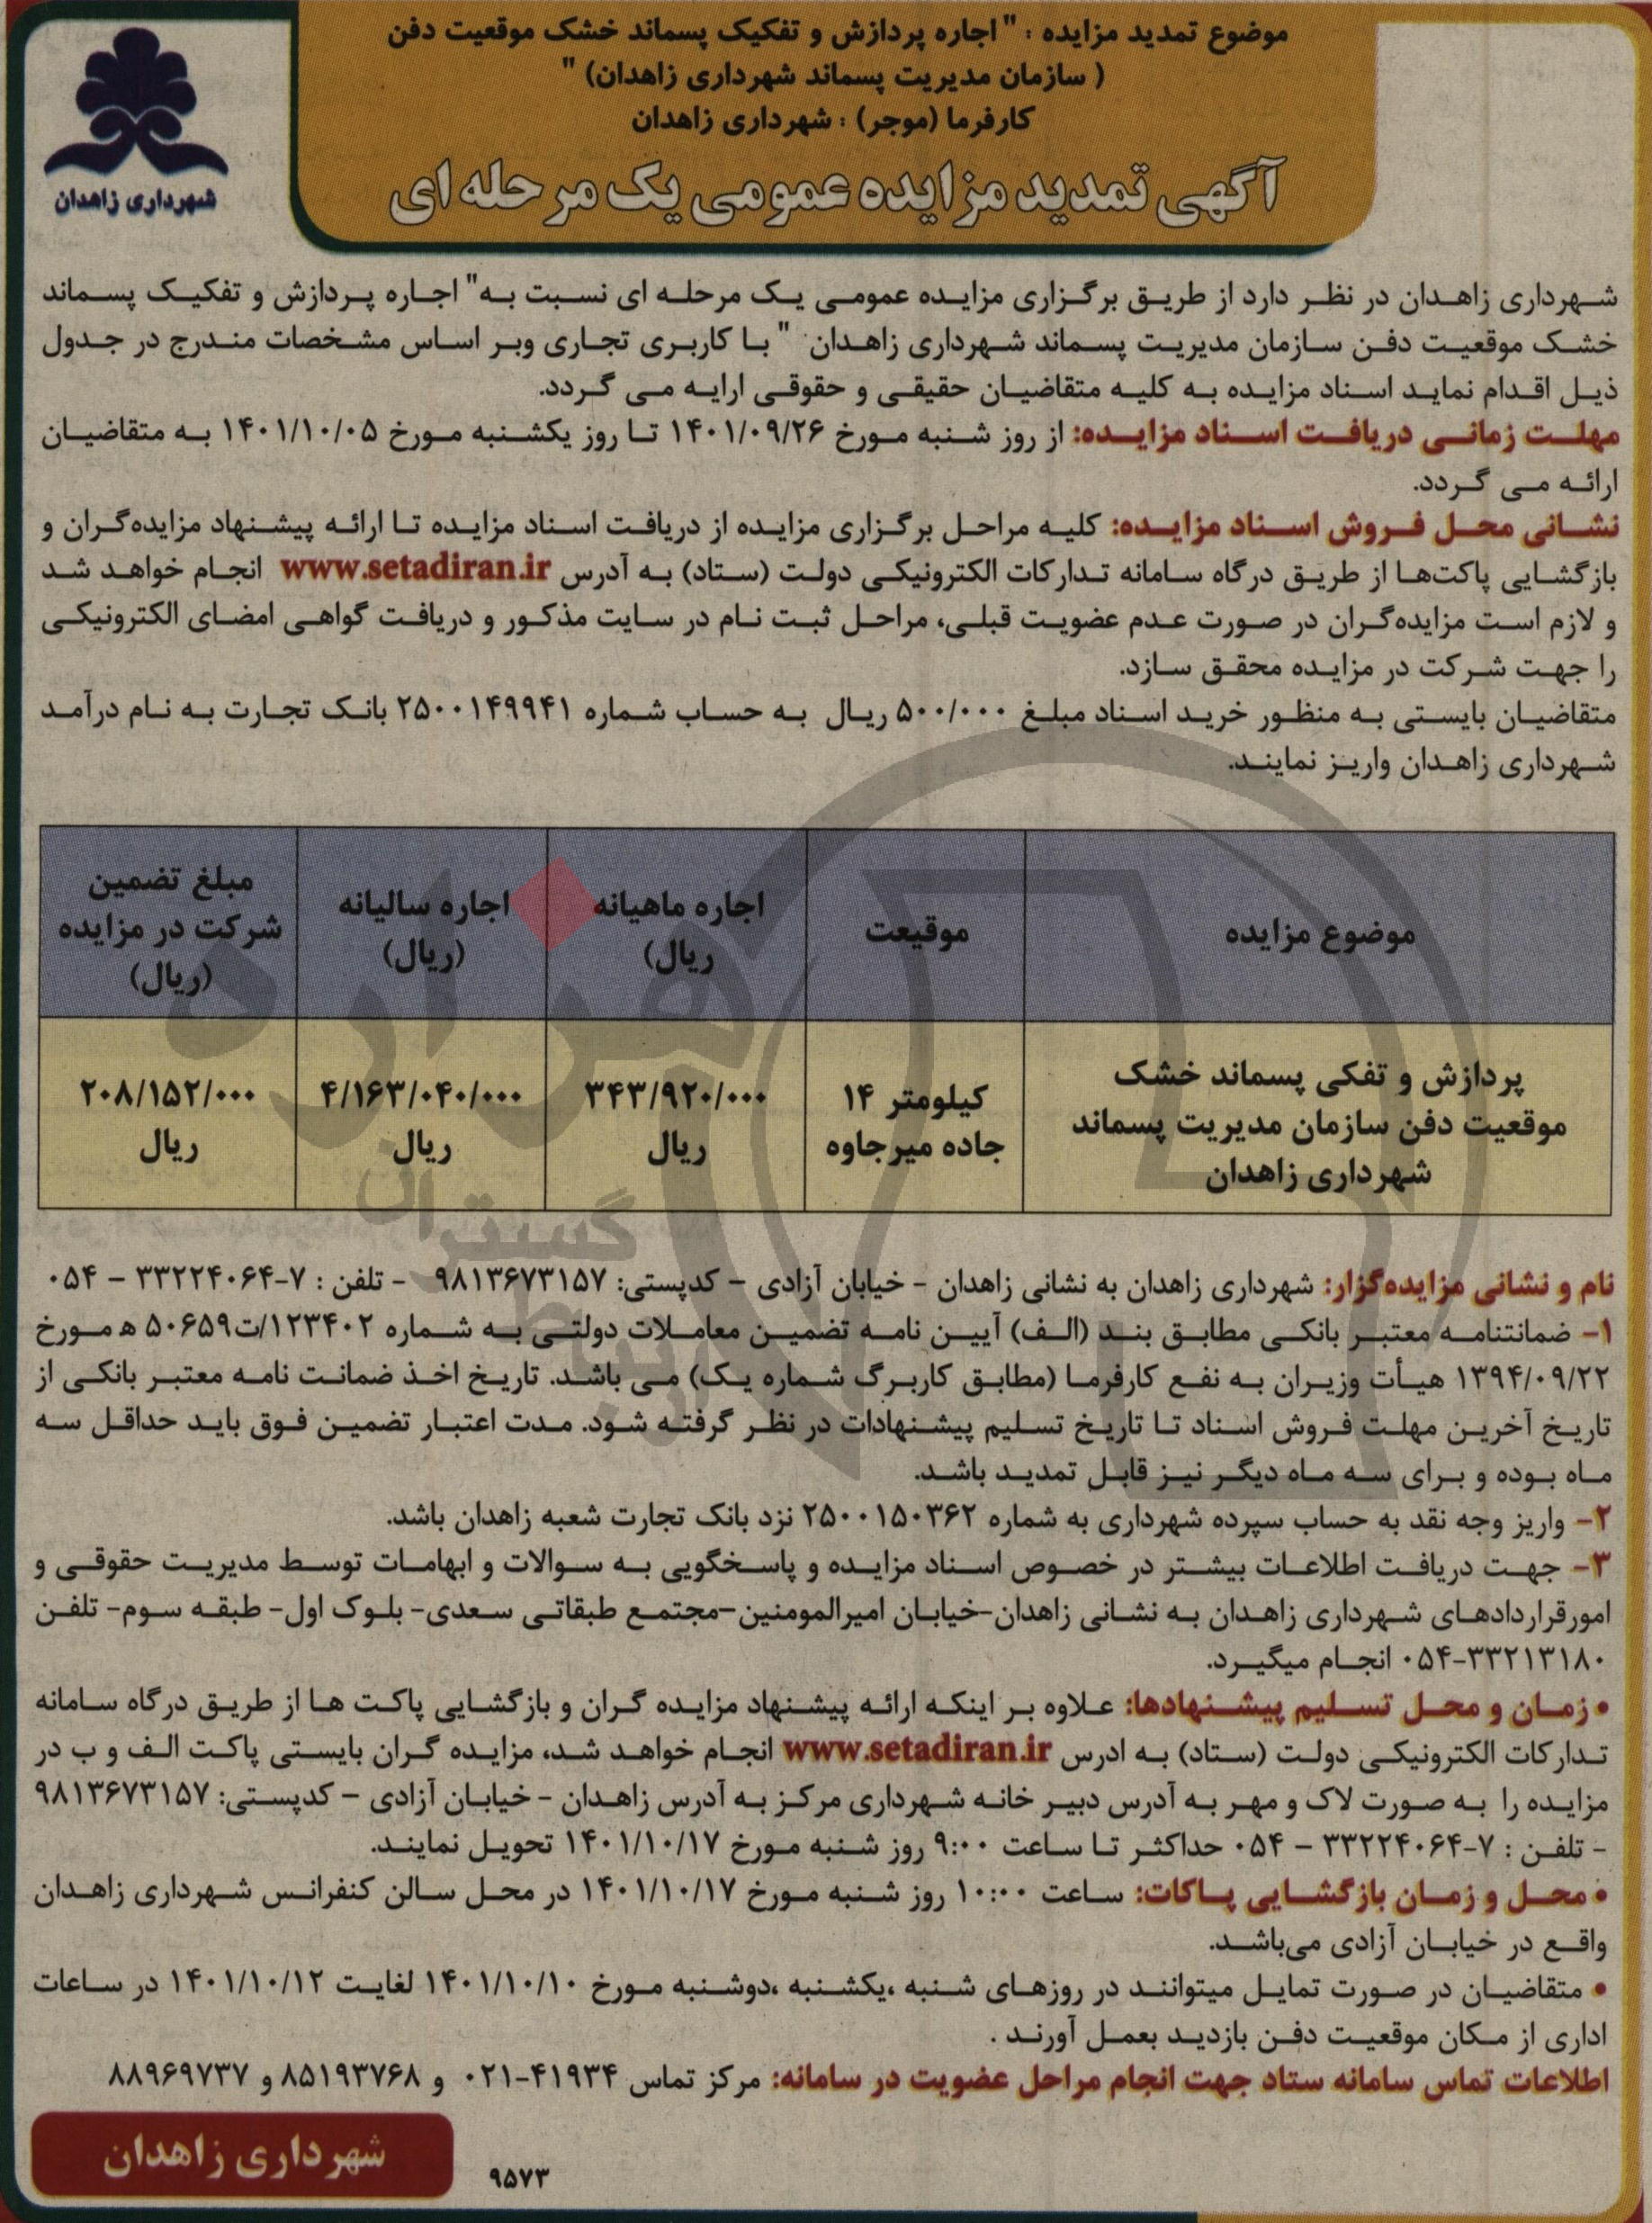 موضوع تمدید مزایده : " اجاره پردازش و تفکیک پسماند خشک موقعیت دفن
( سازمان مدیریت پسماند شهرداری زاهدان) "
کارفرما (موجر) : شهرداری زاهدان
آگهی تمدید مزایده عمومی یک مرحله ای
شهرداری زاهدان
شهرداری زاهدان در نظر دارد از طریق برگزاری مزایده عمومی یک مرحله ای نسبت به" اجاره پردازش و تفکیک پسماند
خشک موقعیت دفن سازمان مدیریت پسماند شهرداری زاهدان " با کاربری تجاری وبر اساس مشخصات مندرج در جدول
ذیل اقدام نماید اسناد مزایده به کلیه متقاضیان حقیقی و حقوقی ارایه می گردد.
مهلت زمانی دریافت اسناد مزایده: از روز شنبه مورخ ۱۴۰۱/۰۹/۲۶ تا روز یکشنبه مورخ ۱۴۰۱/۱۰/۰۵ به متقاضیان
ارائه می گردد.
نشانی محل فروش اسناد مزایده: کلیه مراحل برگزاری مزایده از دریافت اسناد مزایده تا ارائه پیشنهاد مزایده‌گران و
بازگشایی پاکت‌ها از طریق درگاه سامانه تدارکات الکترونیکی دولت (ستاد) به آدرس www.setadiran.ir انجام خواهد شد
و لازم است مزایده‌گران در صورت عدم عضویت قبلی، مراحل ثبت نام در سایت مذکور و دریافت گواهی امضای الکترونیکی
را جهت شرکت در مزایده محقق سازد.
متقاضیان بایستی به منظور خرید اسناد مبلغ ۵۰۰/۰۰۰ ریال به حساب شماره ۲۵۰۰۱۴۹۹۴۱ بانک تجارت به نام درآمد
شهرداری زاهدان واریز نمایند.
موضوع مزایده
موقیعت
اجاره ماهیانه
ریال)
اجاره سالیانه
(ریال)
مبلغ تضمین
شرکت در مزایده
(ریال)
پردازش و تفکی پسماند خشک
موقعیت دفن سازمان مدیریت پسماند
شهرداری زاهدان
کیلومتر ۱۴
جاده میرجاوه
۳۴۳/۹۲۰/۰۰۰
ریال
۴/۱۶۳/۰۴۰/۰۰۰
ریال
۲۰۸/۱۵۲/۰۰۰
ریال
هزاره
گستران
نام و نشانی مزایده‌گزار: شهرداری زاهدان به نشانی زاهدان - خیابان آزادی – کدپستی: ۹۸۱۳۶۷۳۱۵۷ - تلفن : ۷-۳۳۲۲۴۰۶۴ – ۰۵۴
۱- ضمانتنامه معتبر بانکی مطابق بند (الف) آیین نامه تضمین معاملات دولتی به شماره ۱۲۳۴۰۲/ت۵۰۶۵۹ ه مورخ
۱۳۹۴/۰۹/۲۲ هیأت وزیران به نفع کارفرما (مطابق کاربرگ شماره یک) می باشد. تاریخ اخذ ضمانت نامه معتبر بانکی از
تاریخ آخرین مهلت فروش اسناد تا تاریخ تسلیم پیشنهادات در نظر گرفته شود. مدت اعتبار تضمین فوق باید حداقل سه
ماه بوده و برای سه ماه دیگر نیز قابل تمدید باشد.
۲- واریز وجه نقد به حساب سپرده شهرداری به شماره ۲۵۰۰۱۵۰۳۶۲ نزد بانک تجارت شعبه زاهدان باشد.
۳- جهت دریافت اطلاعات بیشتر در خصوص اسناد مزایده و پاسخگویی به سوالات و ابهامات توسط مدیریت حقوقی و
امورقراردادهای شهرداری زاهدان به نشانی زاهدان-خیابان امیرالمومنین-مجتمع طبقاتی سعدی- بلوک اول- طبقه سوم- تلفن
۰۵۴-۳۳۲۱۳۱۸۰ انجام میگیرد.
• زمان و محل تسلیم پیشنهادها: علاوه بر اینکه ارائه پیشنهاد مزایده گران و بازگشایی پاکت ها از طریق درگاه سامانه
تدارکات الکترونیکی دولت (ستاد) به ادرس www.setadiran.ir انجام خواهد شد، مزایده گران بایستی پاکت الف و ب در
مزایده را به صورت لاک و مهر به آدرس دبیر خانه شهرداری مرکز به آدرس زاهدان - خیابان آزادی – کدپستی: ۹۸۱۳۶۷۳۱۵۷
- تلفن : ۷-۳۳۲۲۴۰۶۴ – ۰۵۴ حداکثر تا ساعت ۹:۰۰ روز شنبه مورخ ۱۴۰۱/۱۰/۱۷ تحویل نمایند.
• محل و زمان بازگشایی پاکات: ساعت ۱۰:۰۰ روز شنبه مورخ ۱۴۰۱/۱۰/۱۷ در محل سالن کنفرانس شهرداری زاهدان
واقع در خیابان آزادی می‌باشد.
• متقاضیان در صورت تمایل میتوانند در روزهای شنبه ،یکشنبه ،دوشنبه مورخ ۱۴۰۱/۱۰/۱۰ لغایت ۱۴۰۱/۱۰/۱۲ در ساعات
اداری از مکان موقعیت دفن بازدید بعمل آورند .
اطلاعات تماس سامانه ستاد جهت انجام مراحل عضویت در سامانه: مرکز تماس ۴۱۹۳۴-۰۲۱ و ۸۵۱۹۳۷۶۸ و ۸۸۹۶۹۷۳۷
شهرداری زاهدان
۹۵۷۳